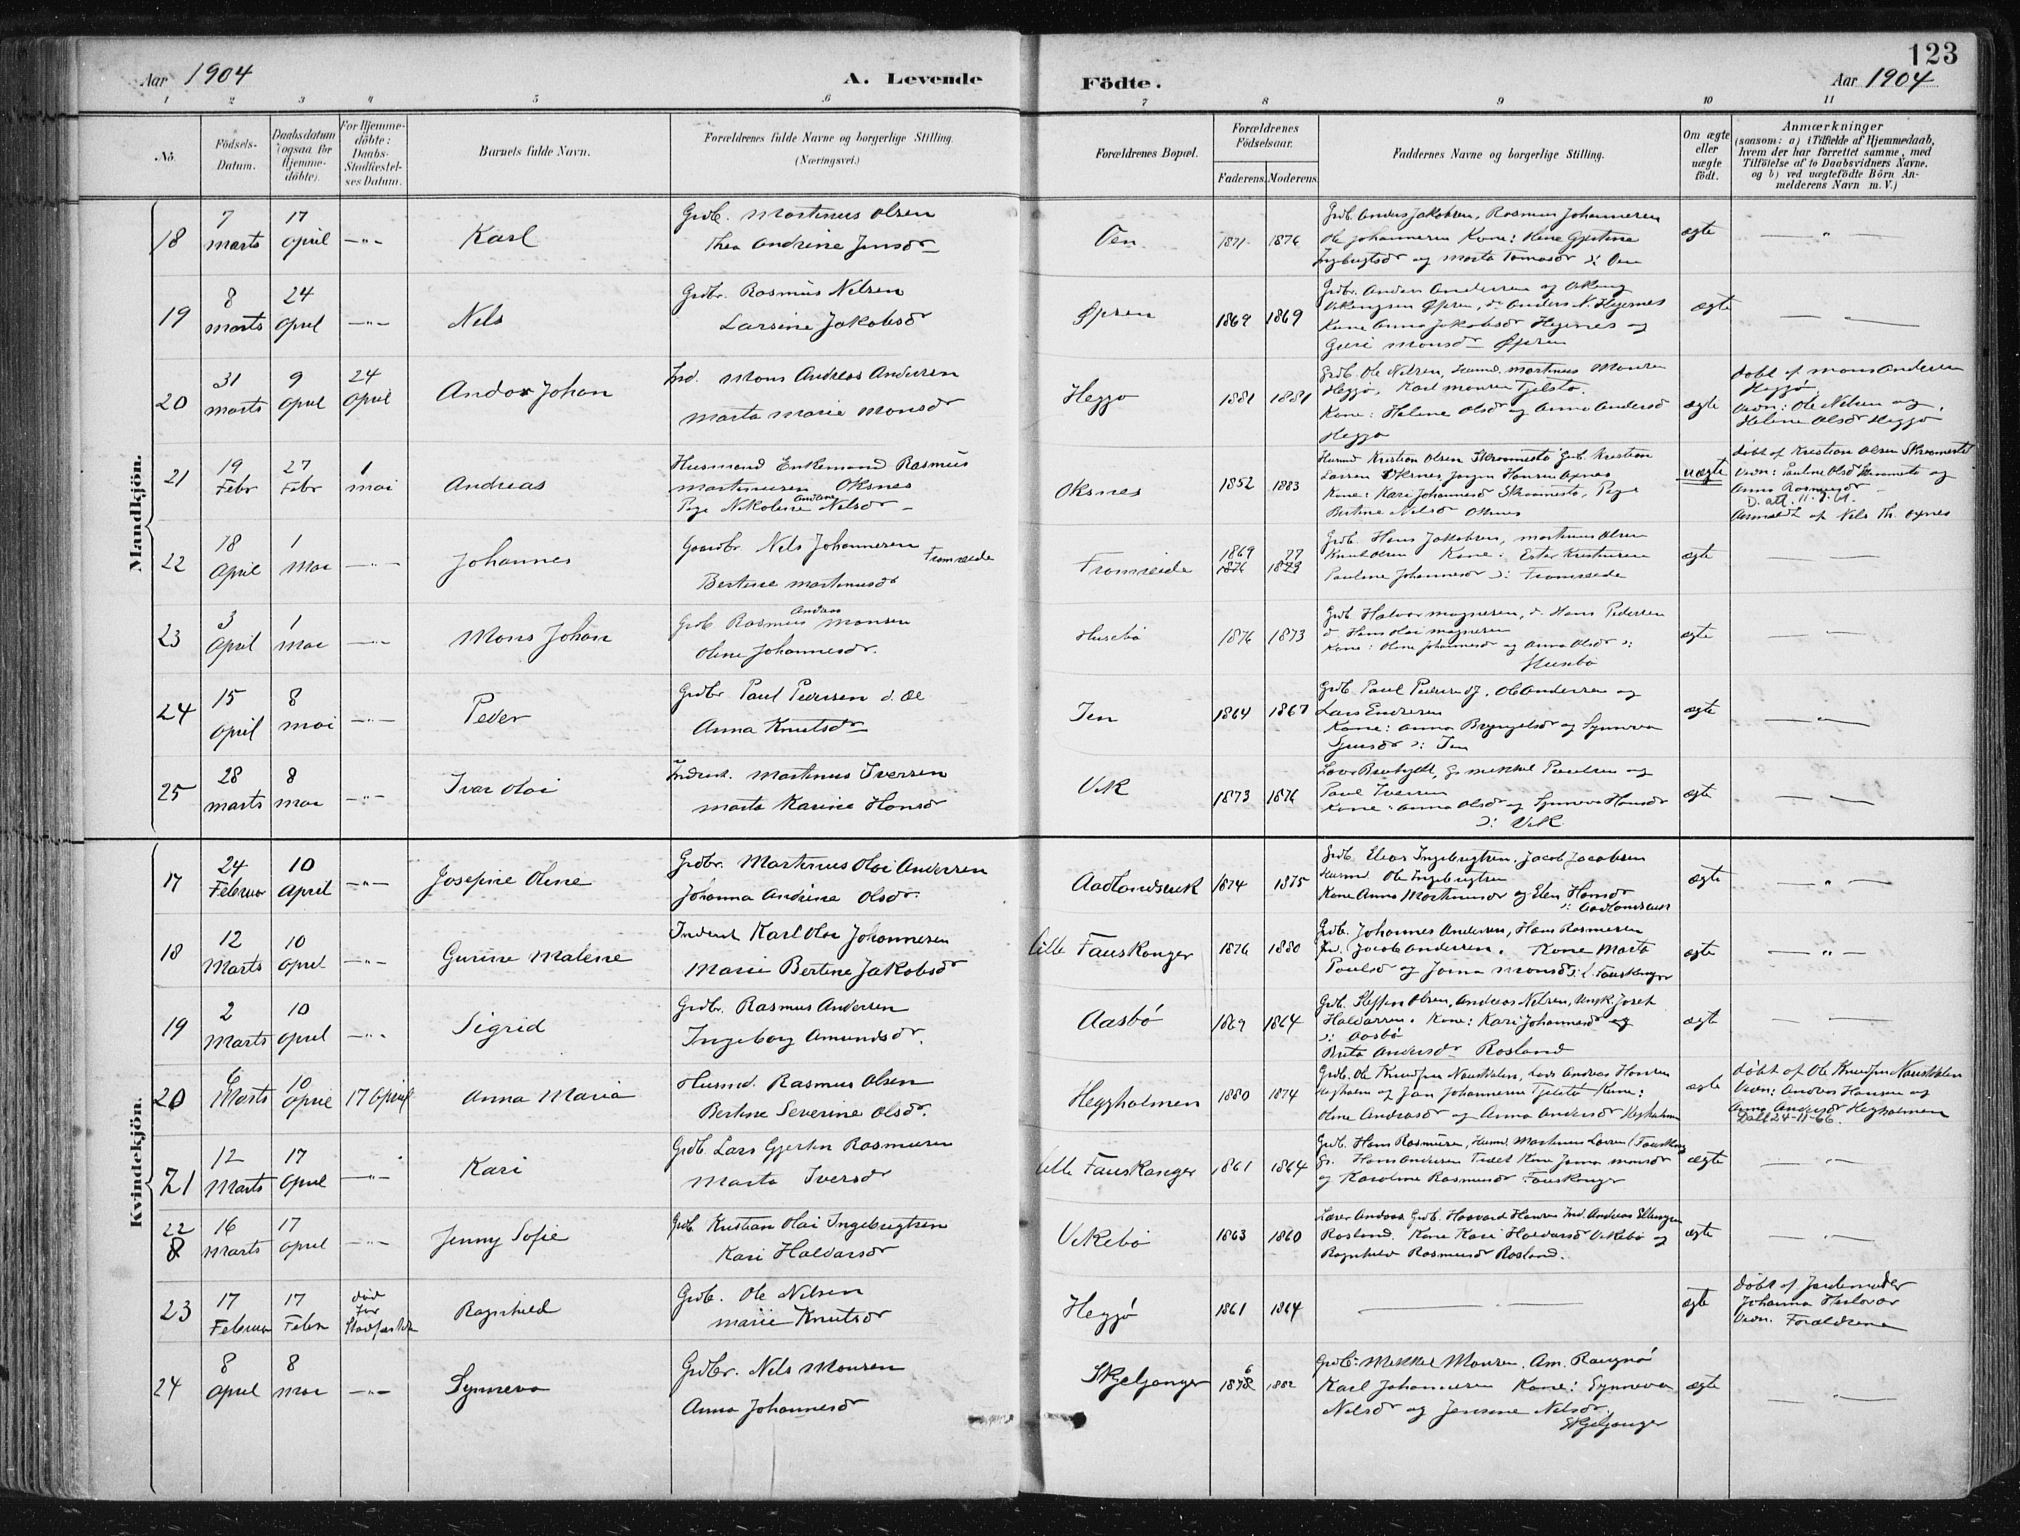 123
Aar 1904
A. Levende
Födte.
Aar 1904
1 2 3 4 5 6 7 8 9 10 11
No.
Födsels-
Datum.
Daabsdatum
(ogsaa for
Hjemme-
döbte).
For Hjemme-
döbte:
Daabs-
Stadfæstel-
ses Datum.
Barnets fulde Navn.
Forældrenes fulde Navne og borgerlige Stilling.
(Næringsvei.)
Forældrenes Bopæl.
Forældrenes
Födselsaar.
Faderens. Moderens.
Faddernes Navne og borgerlige Stilling.
Om ægte
eller
uægte
födt.
Anmærkninger
(saasom: a) i Tilfælde af Hjemmedaab,
hvem der har forrettet samme, med
Tilföielse af to Daabsvidners Navne,
og b) ved uægtefödte Börn An-
melderens Navn m. V.)
Mandkjön.
18
7 marts
17 april
—"—
Karl
Grdb. Martinus Olsen
Thea Andrine Jensdr
Øen
1871 1876
Grdb. Anders Jakobsen, Rasmus Johannesen
Ole Johannesen Kone: Gjertine
og Marta Tomasdr
ægte
—"—
19
8 marts
24 April
—"—
Nels
Grdbr. Rasmus Nelsen
Larsine Jakobsdr
Øpren
1869 1869
Grdbr. Anders Andersen og
Øpren, Anders N. Hegernes
Kone Anna Jakobsdr Hegernes og
Guri Monsdr Øpren
ægte
—"—
20
31 marts
9 April
24 April
Andor Johan
Ind. Mons Andreas Andersen
Marta Marie Monsdr
Hegjø
1881 1881
Grdb. Ole Nelsen, Husmd. Martinus Monsen
Hegjø, Karl Monsen Tjelstø.
Kone: Helene Olsdr og Anna Andersdr
Hegjø
ægte
döbt af Mons Andersen
Hegjø
Vidn: Ole Nelsen og
Helene Olsdr Hegjø
21
19 Febr
27 Febr
1 mai
Andreas
Husmand Enkemand Rasmus
Martinusen Oksnes
Pige Nikoline Andrea Nelsdr
Oksnes
1852 1883
Husmd Kristian Olsen Grdb. Kristian
Larsen Oksnes, Hansen
Kone: Kari Johannesdr Pige
Bertine Nelsdr Oksnes
uægte
döbt af Kristian Olsen
Vidn: Pauline Olsdr og
Anna Rasmusdr
Anmeldt af Nels Th. Oxnes
22
18 April
1 Mai
—"—
Johannes
Gaardbr. Nels Johannesen Framreide
Bertine Martinusdr
Framreide
1869 77
1876 1873
Grdb. Hans Jakobsen, Martinus Olsen
Knut Olsen Kone: Ester Kristiansen
Pauline Johannesdr ɔ: Framreide
ægte
—"—
23
3 April
1 mai
—"—
Mons Johan
Grdb. Rasmus Andreas Monsen
Oline Johannesdr.
Husebø
1876 1873
Grdb. Halvor Magnesen, d. Hans Pedersen
d. Hans Olai Magnesen
Kone: Oline Johannesdr og Anna Olsdr ɔ:
Husebø
ægte
—"—
24
15 April
8 mai
—"—
Peder
Grdbr Paul Pedersen d. æ
Anna Knutsdr
Ten
1864 1867
Grdb. Paul Pedersen dy, Ole Andersen og
Lars Endresen
Kone: Anna Brynjelsdr og Synneva
ɔ: Ten
ægte
—"—
25
28 marts
8 mai
—"—
Ivar Olai
Inderst. Martinus Iversen
Marta Karine Hansdr
Vik
1873 1876
Mikkel Paulsen og
Paul Iversen
Kone: Anna Olsdr og Synneva Hansdr
ɔ: Vik
ægte
—"—
Kvindekjön.
17
24 Februar
10 April
—"—
Josefine Oline
Grdbr. Martinus Olai Andersen
Johanna Andrine Olsdr.
Aadlandsvik
1874 1875
Grdb. Elias Ingebrigtsen, Jacob Jacobsen
Husmd Ole Ingebrigtsen
Kone Anna Martinusdr og Elen Hansdr
ɔ: Aadlandsvik
ægte
—"—
18
12 Marts
10 April
—"—
Gurine Malene
Inderst Karl Olai Johannesen
Marie Bertine Jakobsdr
Lille Fauskanger
1876 1880
Grdb. Johannes Andersen, Hans Rasmusen
Jacob Andersen. Kone Marta
Paulsdr og Monsdr ɔ: L. Fauskanger
ægte
—"—
19
2 Marts
10 April
—"—
Sigrid
Grdbr. Rasmus Andersen
Ingeborg Amundsdr.
Aasbø
1869 1864
Grdb. Steffen Olsen, Andreas Nelsen, Ungk. Josef
Haldorsen. Kone: Kari Johannesdr og
ɔ: Aasbø
Brita Andersdr Rosland
ægte
—"—
20
6 Marts
10 April
17 April
Anna Maria
Husmd. Rasmus Olsen
Bertine Severine Olsdr.
Hegholmen
1880 1874
Grdb. Ole Knudsen Lars Andreas Hansen
Hegholm og Jan Johannesen Tjelstø Kone:
Oline Andersdr og Anna Andersdr Hegholmen
ægte
döbt af Ole Knudsen
Vidn: Andreas Hansen og
Anna Andersdr Hegholmen
D. att 24-11-66.
21
12 Marts
17 April
—"—
Kari
Grdb. Lars Gjertin Rasmusen
Marta Iversdr
Lille Fauskanger
1861 1864
Grdb. Hans Rasmusen, Husmd. Martinus Larsen L. Fauskang
Hans Andersen Kone Monsdr
og Karoline Rasmusdr Fauskanger
ægte
—"—
22
8
16 Marts
17 April
—"—
Jenny Sofie
Grdb. Kristian Olai Ingebrigtsen
Kari Haldorsdr
Vikebø
1863 1860
Lærer Andreas Grdb. Haavard Hansen Ind. Andreas Ellingsen
Rosland. Kone Kari Haldorsdr Vikebø og
Ragnhild Rasmusdr Rosland.
ægte
—"—
23
17 Februar
17 Febr
död
før
Stadfæstelse
Ragnhild
Grdb. Ole Nelsen
Marie Knutsdr
Hegjø
1861 1864
—"—
ægte
döbt af Jordemoder
Johanna
Vidn. Forældrene
24
8 April
8 mai
—"—
Synneva
Grdbr. Nels Monsen
Anna Johannesdr
Skjeljanger
1878 6 1882
Grdb. Mikkel Monsen, Am. Rangnø
Karl Johannesen Kone: Synneva
Nelsdr og Jensine Nelsdr.
Skjeljanger
ægte
—"—